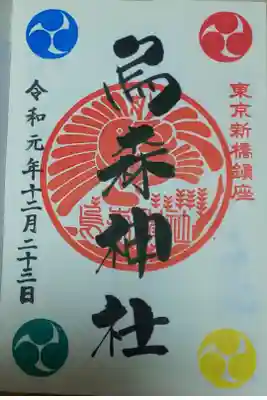 東京新橋鎮座
烏森神社
令和元年十二月二十三日